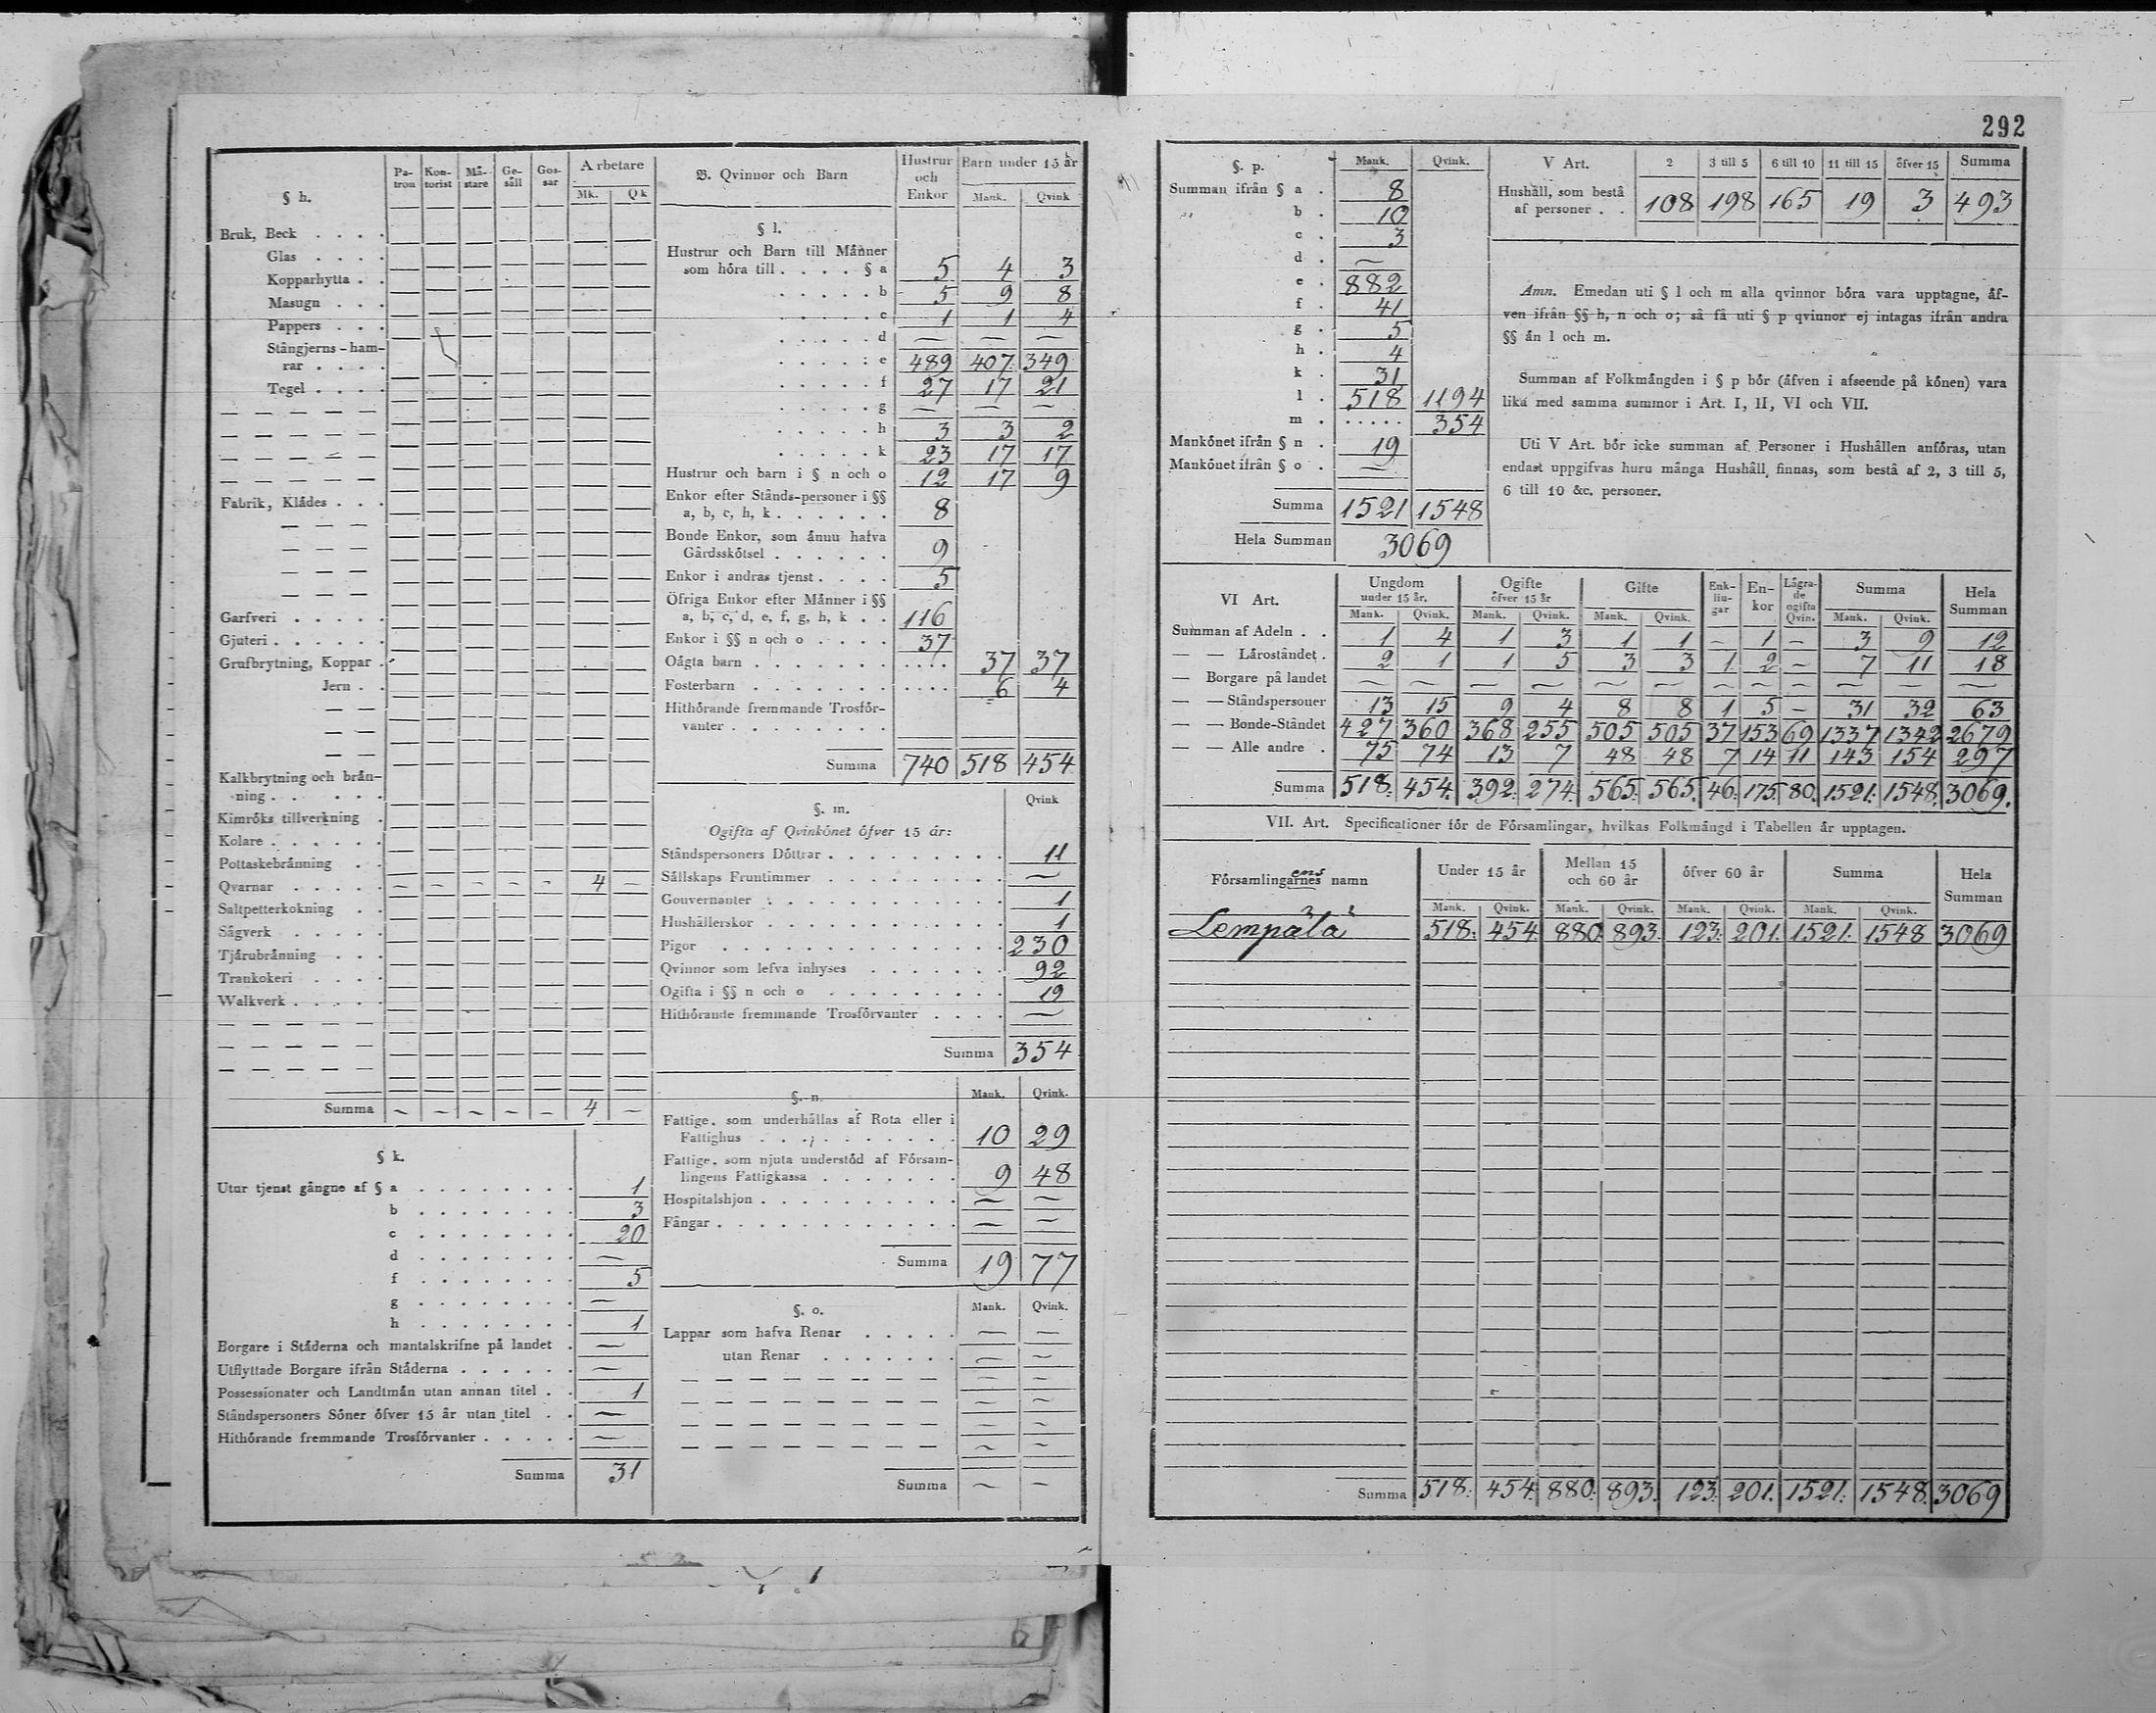 292
§ h. Pa-tron Kon-torist Må-stare Ge-såll Gos-sar Arbetare Mk. Qk
Bruk, Beck . . . .
Glas . . . .
Kopparhytta . .
Masugn . . .
Pappers . . .
Stångjerns-ham-
rar . . . .
Tegel . . . .
Fabrik, Klådes . . .
Garfveri . . . . .
Gjuteri . . . . . .
Grufbrytning, Koppar .
Jern . .
Kalkbrytning och brån-
ning . . . . . .
Kimröks tillverkning .
Kolare . . . . . .
Pottaskebrånning . .
Qvarnar . . . . . – – – – – 4 –
Saltpetterkokning . .
Sågverk . . . . .
Tjårubrånning . . .
Trankokeri . . . .
Walkverk . . . . .
Summa – – – – – 4 –
§ k.
Utur tjenst gångne af § a . . . . . . . . 1
b . . . . . . . . 3
c . . . . . . . . 20
d . . . . . . . . —
f . . . . . . . . 5
g . . . . . . . . —
h . . . . . . . . 1
Borgare i Ståderna och mantalskrifne på landet . —
Utflyttade Borgare ifrån Ståderna . . . . . . —
Possessionater och Landtmån utan annan titel . . 1
Ståndspersoners Söner öfver 15 år utan titel . . —
Hithörande fremmande Trosförvanter . . . . . —
Summa 31
B. Qvinnor och Barn Hustrur och Enkor Barn under 15 år Mank. Qvink
§ l.
Hustrur och Barn till Månner
som höra till . . . . § a 5 4 3
. . . . . b 5 9 8
. . . . . c 1 1 4
. . . . . d — — —
. . . . : e 489 407 349
. . . . . f 27 17 21
. . . . . g — — —
. . . . . h 3 3 2
. . . . . k 23 17 17
Hustrur och barn i § n och o 12 17 9
Enkor efter Stånds-personer i §§
a, b, c, h, k . . . . . . 8
Bonde Enkor, som ånnu hafva
Gårdsskötsel . . . . . . 9
Enkor i andras tjenst . . . . 5
Öfriga Enkor efter Månner i §§
a, b, c, d, e, f, g, h, k . . 116
Enkor i §§ n och o . . . . 37
Oågta barn . . . . . . . . . . . . 37 37
Fosterbarn . . . . . . . . . . . . 6 4
Hithörande fremmande Trosför-
vanter . . . . . . . .
Summa 740 518 454
§. m. Qvink
Ogifta af Qvinkönet öfver 15 år:
Ståndspersoners Döttrar . . . . . . . . . 11
Sållskaps Fruntimmer . . . . . . . . . —
Gouvernanter . . . . . . . . . . . . 1
Hushållerskor . . . . . . . . . . . . 1
Pigor . . . . . . . . . . . . . . 230
Qvinnor som lefva inhyses . . . . . . . 92
Ogifta i §§ n och o . . . . . . . . . 19
Hithörande fremmande Trosförvanter . . . . —
Summa 354
§. n. Mank. Qvink.
Fattige, som underhållas af Rota eller i
Fattighus . . . . . . . . . . 10 29
Fattige, som njuta understöd af Försam-
lingens Fattigkassa . . . . . . . 9 48
Hospitalshjon . . . . . . . . . . — —
Fångar . . . . . . . . . . . . — —
Summa 19 77
§. o. Mank. Qvink.
Lappar som hafva Renar . . . . . — —
utan Renar . . . . . . . — —
Summa — —
§. p. Mank. Qvink.
Summan ifrån § a . 8
„ b . 10
c . 3
d . —
e . 882
f . 41
g . 5
h . 4
k . 31
l . 518 1194
m . ..... 354
Mankönet ifrån § n . 19
Mankönet ifrån § o . —
Summa 1521 1548
Hela Summan 3069
V Art. 2 3 till 5 6 till 10 11 till 15 öfver 15 Summa
Hushåll, som bestå
af personer . . 108 198 165 19 3 493
Anm. Emedan uti § l och m alla qvinnor böra vara upptagne, åf-
ven ifrån §§ h, n och o; så få uti § p qvinnor ej intagas ifrån andra
§§ ån l och m.
Summan af Folkmångden i § p bör (åfven i afseende på könen) vara
lika med samma summor i Art. I, II, VI och VII.
Uti V Art. bör icke summan af Personer i Hushållen anföras, utan
endast uppgifvas huru många Hushåll, finnas, som bestå af 2, 3 till 5,
6 till 10 &c. personer.
VI Art. Ungdom under 15 år. Ogifte öfver 15 år Gifte Enk-lin-gar En-kor Lågra-de ogifta Qvin. Summa Hela Summan
Mank. Qvink. Mank. Qvink. Mank. Qvink. Mank. Qvink.
Summan af Adeln . . 1 4 1 3 1 1 – 1 – 3 9 12
— — Låroståndet . 2 1 1 5 3 3 1 2 – 7 11 18
— Borgare på landet — — — — — — — — — — — —
— — Ståndspersoner 13 15 9 4 8 8 1 5 – 31 32 63
— — Bonde-Ståndet 427 360 368 255 505 505 37 153 69 1337 1342 2679
— — Alle andre . 75 74 13 7 48 48 7 14 11 143 154 297
Summa 518. 454. 392. 274. 565. 565. 46. 175. 80. 1521. 1548. 3069.
VII. Art. Specificationer för de Församlingar, hvilkas Folkmångd i Tabellen år upptagen.
Församlingarnes ens namn Under 15 år Mellan 15 och 60 år öfver 60 år Summa Hela Summan
Mank. Qvink. Mank. Qvink. Mank. Qvink. Mank. Qvink.
Lempälä 518. 454. 880. 893. 123. 201. 1521. 1548 3069
Summa 518. 454. 880. 893. 123. 201. 1521. 1548. 3069